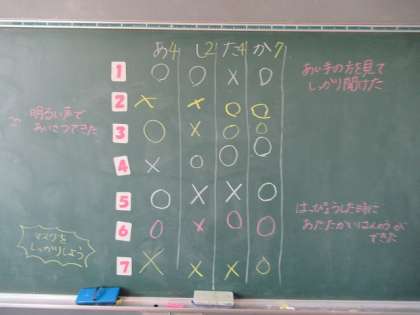 あ4 し2 た4 か7
1 ○ ○ × ○
2 × × ○ ○
3 ○ × ○ ○
4 × ○ ○ ○
5 ○ × × ○
6 ○ × ○ ○
7 × × × ○
明るい声で
あいさつできた
あい手の方を見て
しっかり聞けた
はっぴょうした時に
あたたかいはんのうが
できた
マスクを
しっかりしよう